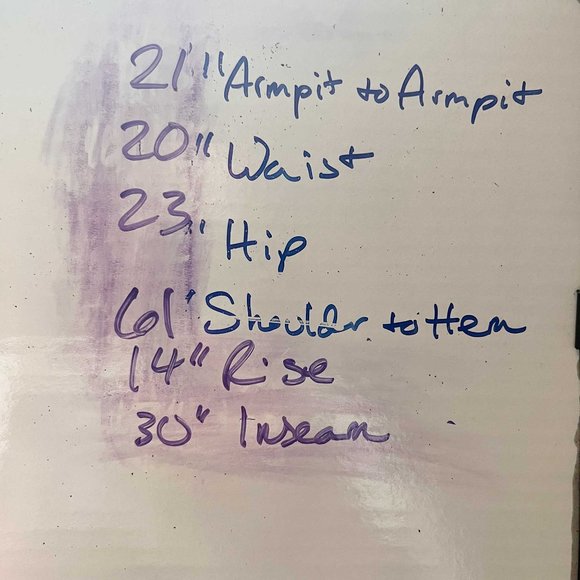 21" Armpit to Armpit
20" Waist
23" Hip
61" Shoulder to Hem
14" Rise
30" Inseam